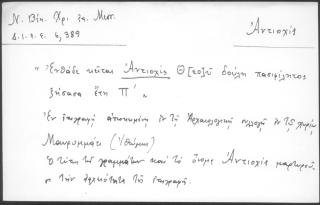 Ν. Βίκ. Χρι. ἐπ. Μεσ.
Δ.Ι.Ε.Ε. 4, 389
Ἀντιοχίς
" Ἐνθάδε κεῖται Ἀντιοχὶς Θ[εο]ῦ δούλη πασιφίλητος
ζήσασα ἔτη Π´ "
Ἐν ἐπιγραφῇ ἐν τῇ Ἀρχαιολογικῇ συλλογῇ ἐν τῷ χωρίῳ
Μαυρομμάτι (Ἰθώμης)
Ὁ τύπος τῶν γραμμάτων καὶ τὸ ὄνομα Ἀντιοχὶς μαρτυροῦ-
σι τὴν τῆς ἐπιγραφῆς.